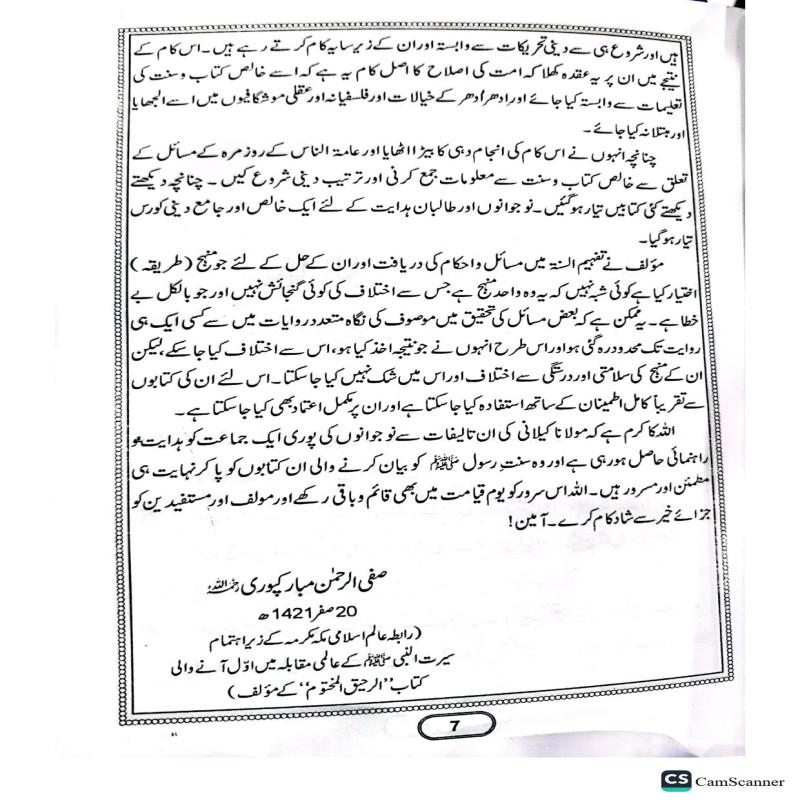 ہیں اور شروع ہی سے دینی تحریکات سے وابستہ اور ان کے زیر سایہ کام کرتے رہے ہیں۔ اس کام کے
نتیجے میں ان پر یہ عقدہ کھلا کہ امت کی اصلاح کا اصل کام یہ ہے کہ اسے خالص کتاب و سنت کی
تعلیمات سے وابستہ کیا جائے اور ادھر اُدھر کے خیالات اور فلسفیانہ اور عقلی موشگافیوں میں اسے الجھایا
اور مبتلا نہ کیا جائے۔
چنانچہ انہوں نے اس کام کی انجام دہی کا بیڑا اٹھایا اور عامۃ الناس کے روزمرہ کے مسائل کے
تعلق سے خالص کتاب و سنت سے معلومات جمع کرنی اور ترتیب دینی شروع کیں۔ چنانچہ دیکھتے
دیکھتے کئی کتابیں تیار ہو گئیں۔ نوجوانوں اور طالبان ہدایت کے لئے ایک خالص اور جامع دینی کورس
تیار ہو گیا۔
مؤلف نے تفہیم السنۃ میں مسائل و احکام کی دریافت اور ان کے حل کے لئے جو منہج (طریقہ)
اختیار کیا ہے کوئی شبہ نہیں کہ یہ وہ واحد منہج ہے جس سے اختلاف کی کوئی گنجائش نہیں اور جو بالکل بے
خطا ہے۔ یہ ممکن ہے کہ بعض مسائل کی تحقیق میں موصوف کی نگاہ متعدد روایات میں سے کسی ایک ہی
روایت تک محدود رہ گئی ہو اور اس طرح انہوں نے جو نتیجہ اخذ کیا ہو، اس سے اختلاف کیا جا سکے، لیکن
ان کے منہج کی سلامتی اور درستگی سے اختلاف اور اس میں شک نہیں کیا جا سکتا۔ اس لئے ان کی کتابوں
سے تقریباً کامل اطمینان کے ساتھ استفادہ کیا جا سکتا ہے اور ان پر مکمل اعتماد بھی کیا جا سکتا ہے۔
اللہ کا کرم ہے کہ مولانا کیلانی کی ان تالیفات سے نوجوانوں کی پوری ایک جماعت کو ہدایت و
راہنمائی حاصل ہو رہی ہے اور وہ سنتِ رسول ﷺ کو بیان کرنے والی ان کتابوں کو پا کر نہایت ہی
مطمئن اور مسرور ہیں۔ اللہ اس سرور کو یوم قیامت میں بھی قائم و باقی رکھے اور مولف اور مستفیدین کو
جزائے خیر سے شاد کام کرے۔ آمین!
صفی الرحمٰن مبارکپوری رحمہ اللہ
20 صفر 1421 ھ
(رابطہ عالم اسلامی مکہ مکرمہ کے زیر اہتمام
سیرت النبی ﷺ کے عالمی مقابلہ میں اوّل آنے والی
کتاب "الرحیق المختوم" کے مؤلف)
7
CS CamScanner